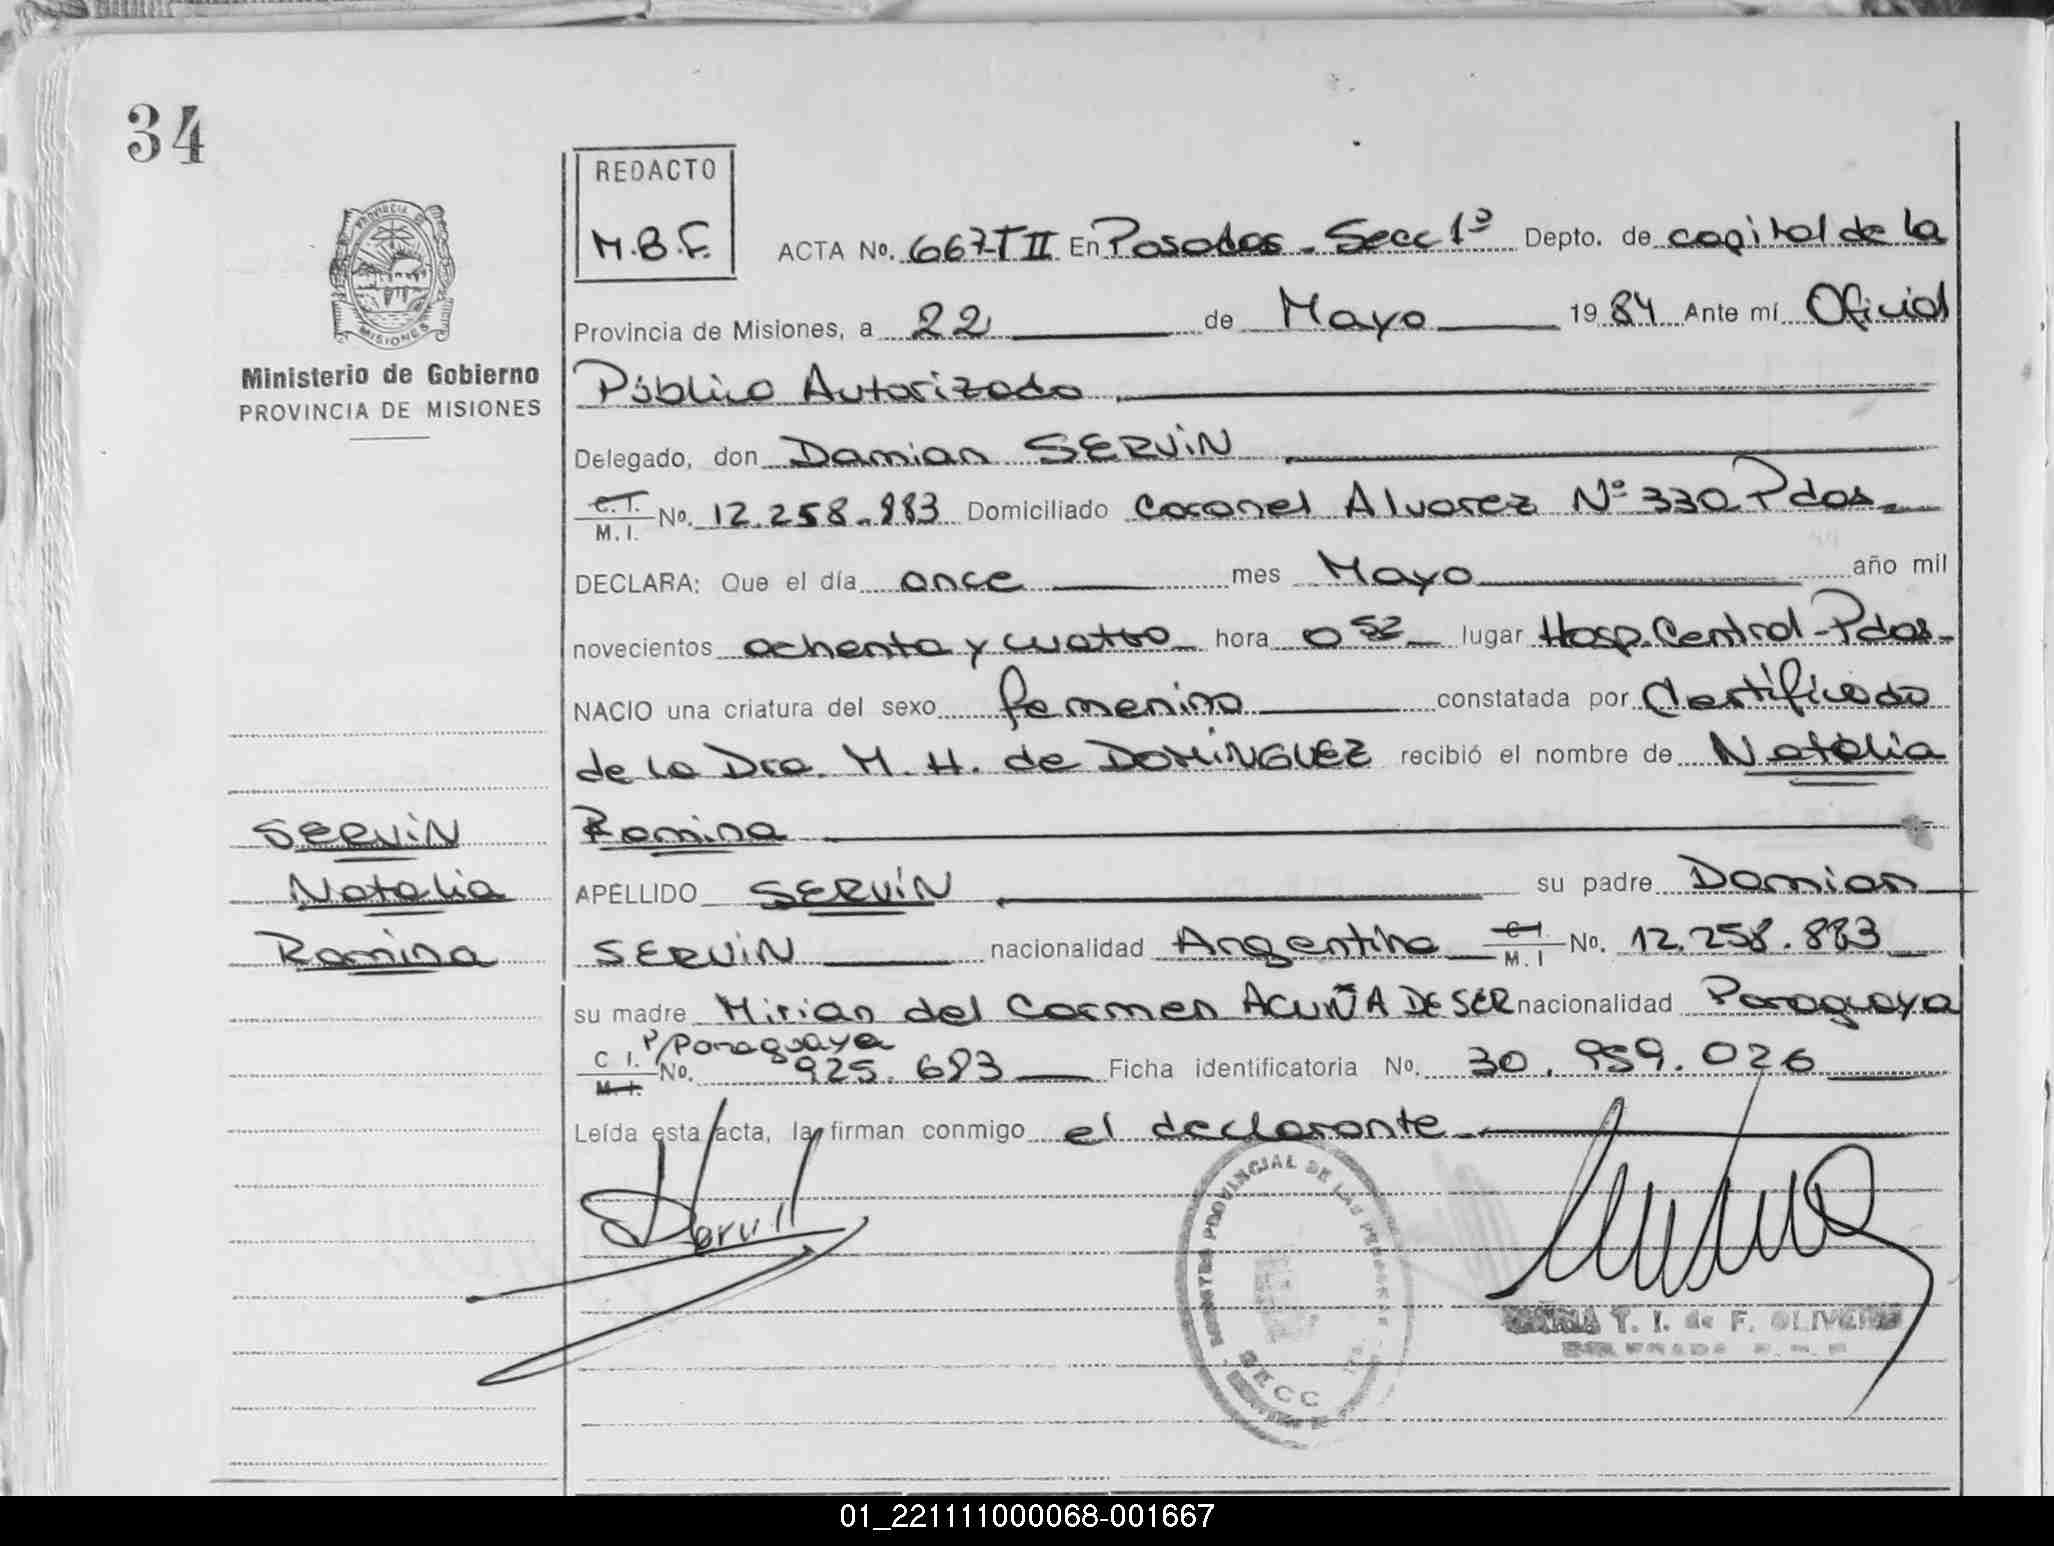 34
PROVINCIA DE
MISIONES
Ministerio de Gobierno
PROVINCIA DE MISIONES
REDACTO
M.B.F.
ACTA No. 667-T II En Posadas - Secc 1º Depto. de capital de la
Provincia de Misiones, a 22 de Mayo 1984 Ante mí Oficial
Público Autorizado
Delegado, don Damian SERVIN
C.I.
M.I. No. 12.258.883 Domiciliado Coronel Alvarez Nº 330 Pdas
DECLARA: Que el día once mes Mayo año mil
novecientos ochenta y cuatro hora 0 52 lugar Hosp. Central - Pdas -
NACIO una criatura del sexo femenino constatada por Certificado
de la Dra. M. H. de DOMINGUEZ recibió el nombre de Natalia
Romina
SERVIN
Natalia
Romina
APELLIDO SERVIN su padre Damian
SERVIN nacionalidad Argentina C.I.
M.I No. 12.258.883
su madre Mirian del Carmen ACUÑA DE SER nacionalidad Paraguaya
P/Paraguaya
C I.
M.I. No. 925.683 Ficha identificatoria No. 30.959.026
Leída esta acta, la firman conmigo el declarante
REGISTRO PROVINCIAL DE LAS PERSONAS
SECC
T. I. de F. OLIVEIRA
01_221111000068-001667